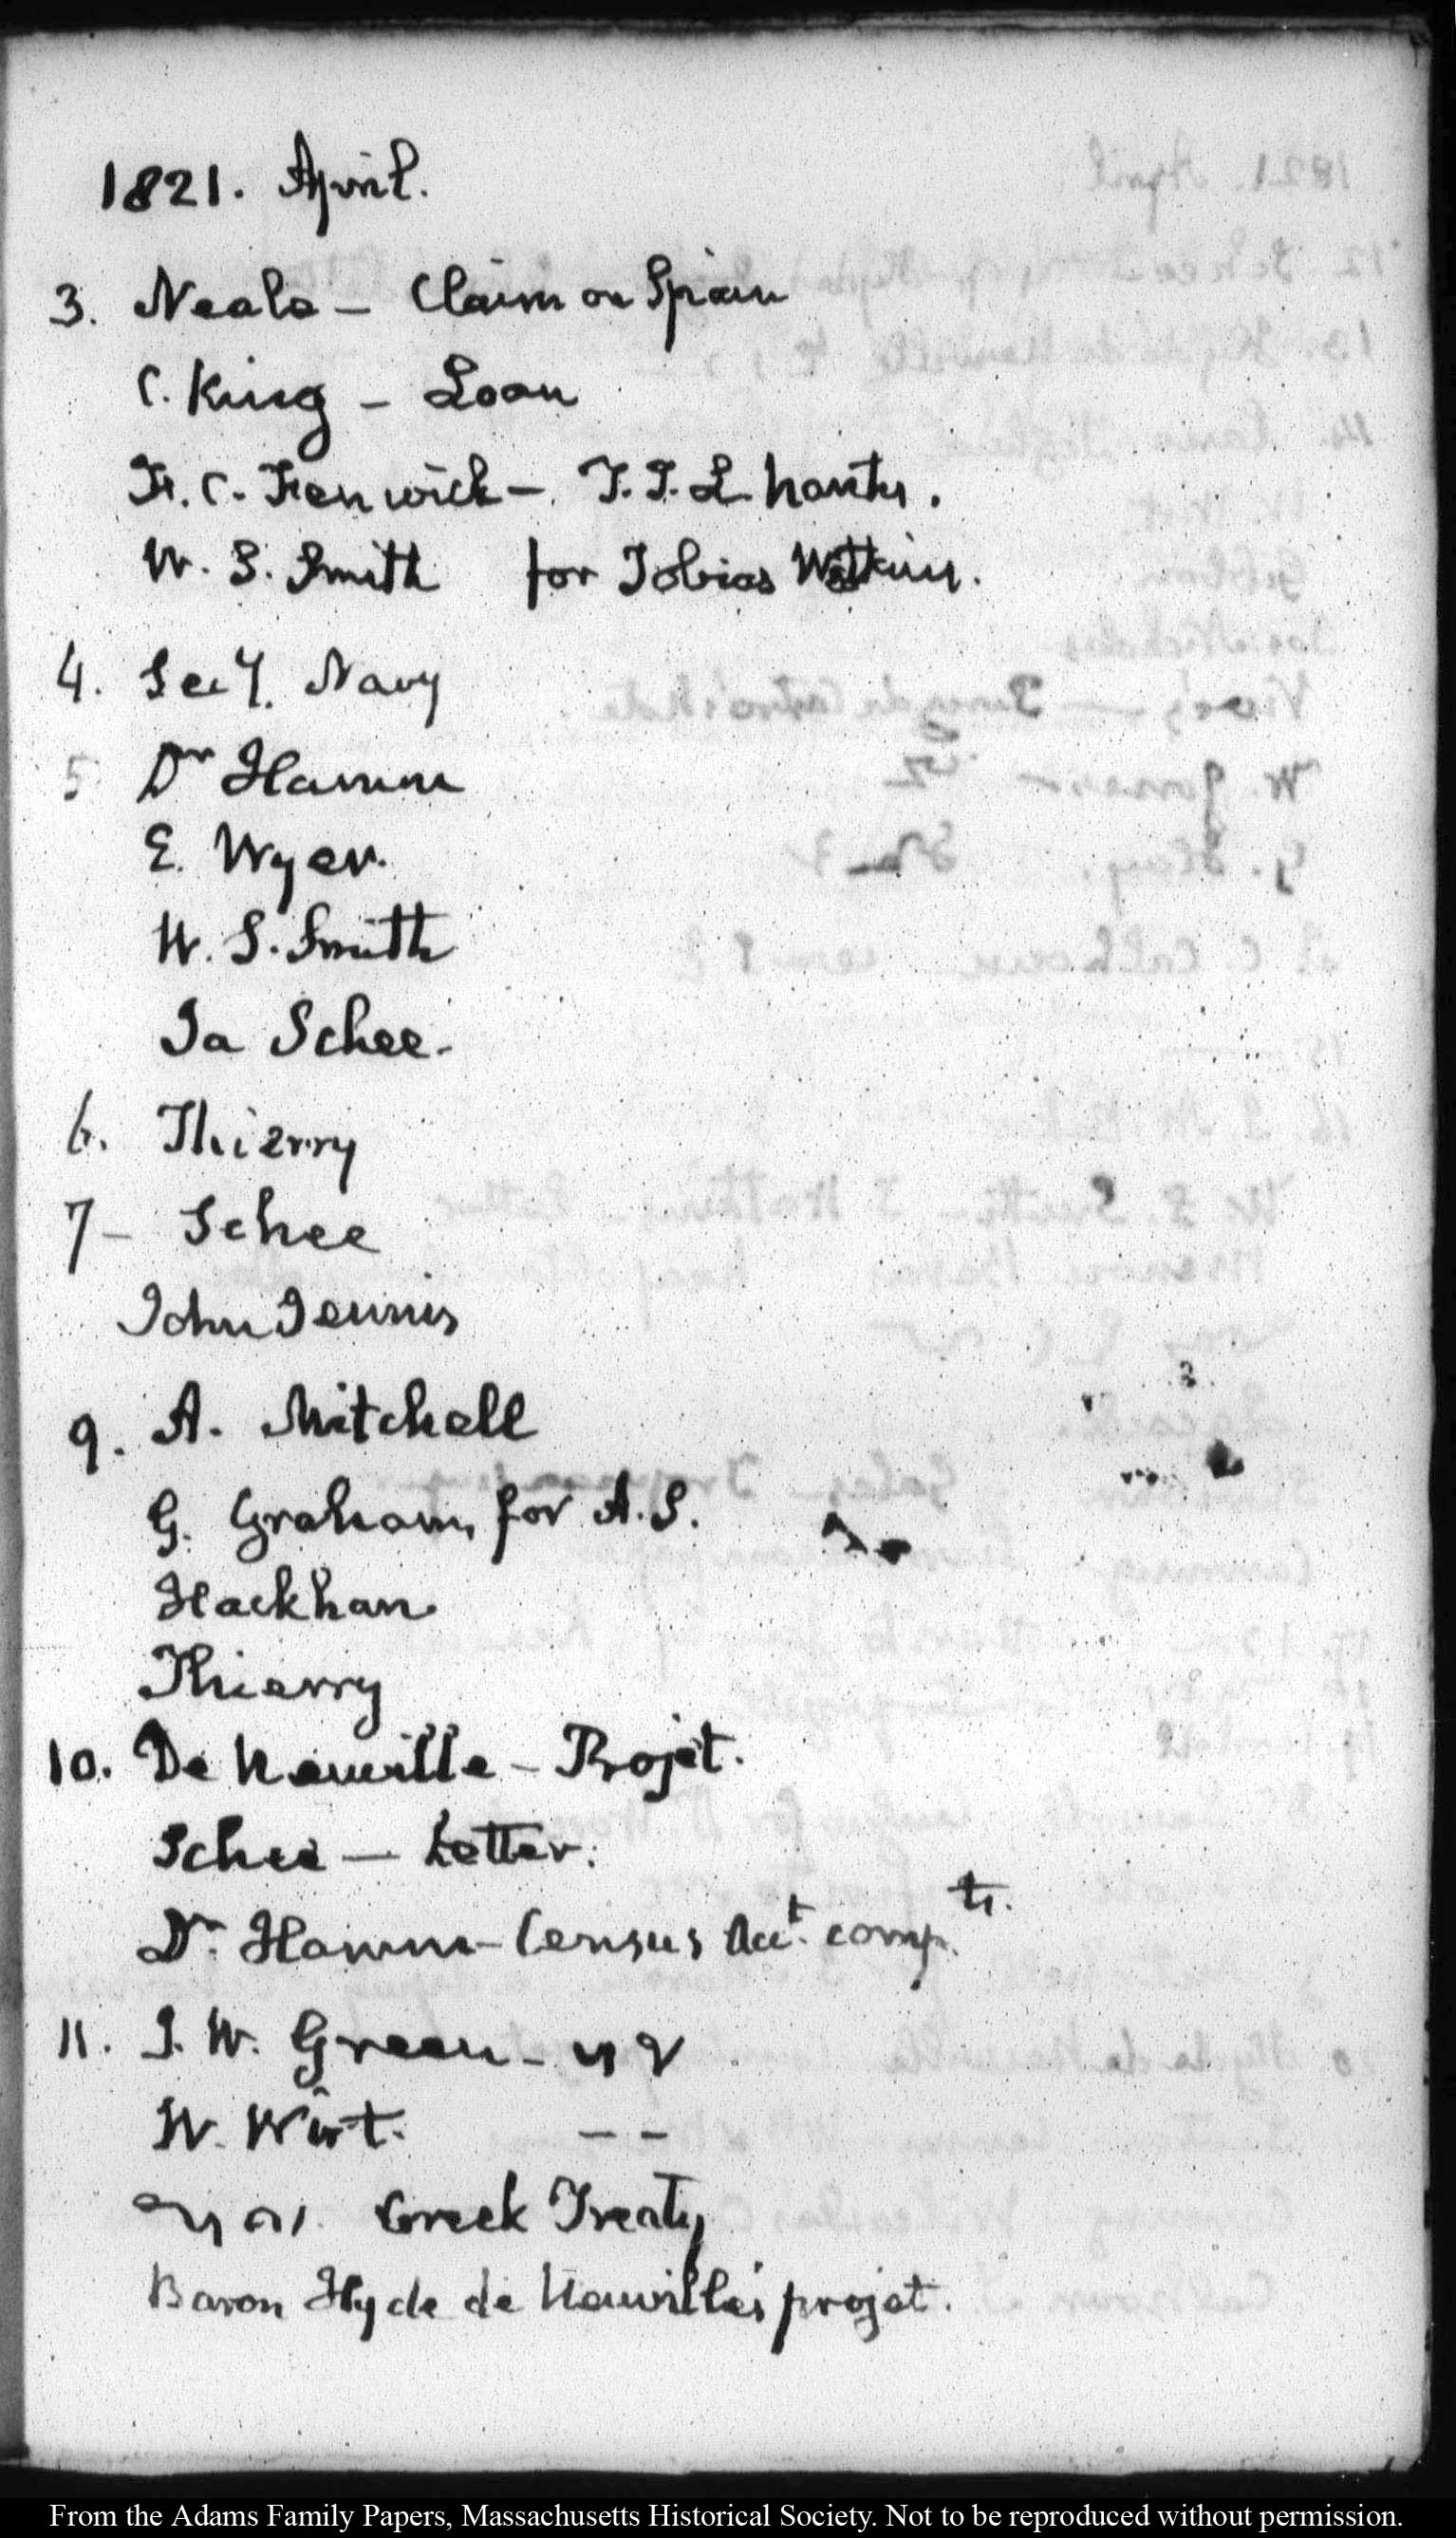 1821. April.
3. Neale – Claim on Spain
C. King – Loan
Fr. C. Fenwick – T. T. L
W. S. Smith for Tobias Watkins.
4. Secy. Navy
5 Dr Hamm
E. Wyer.
W. S. Smith
Ja Schee.
6. Thierry
7 – Schee
John Dennis
9. A. Mitchell
G. Graham, for A. S.
Thierry
10. De Neuville – Projet.
Schee – Letter.
Dr. Hamm – Census Acct. comp
11. J. W. Green –
W. Wirt. – –
Creek Treaty
Baron Hyde de Neuville's projet.
From the Adams Family Papers, Massachusetts Historical Society. Not to be reproduced without permission.